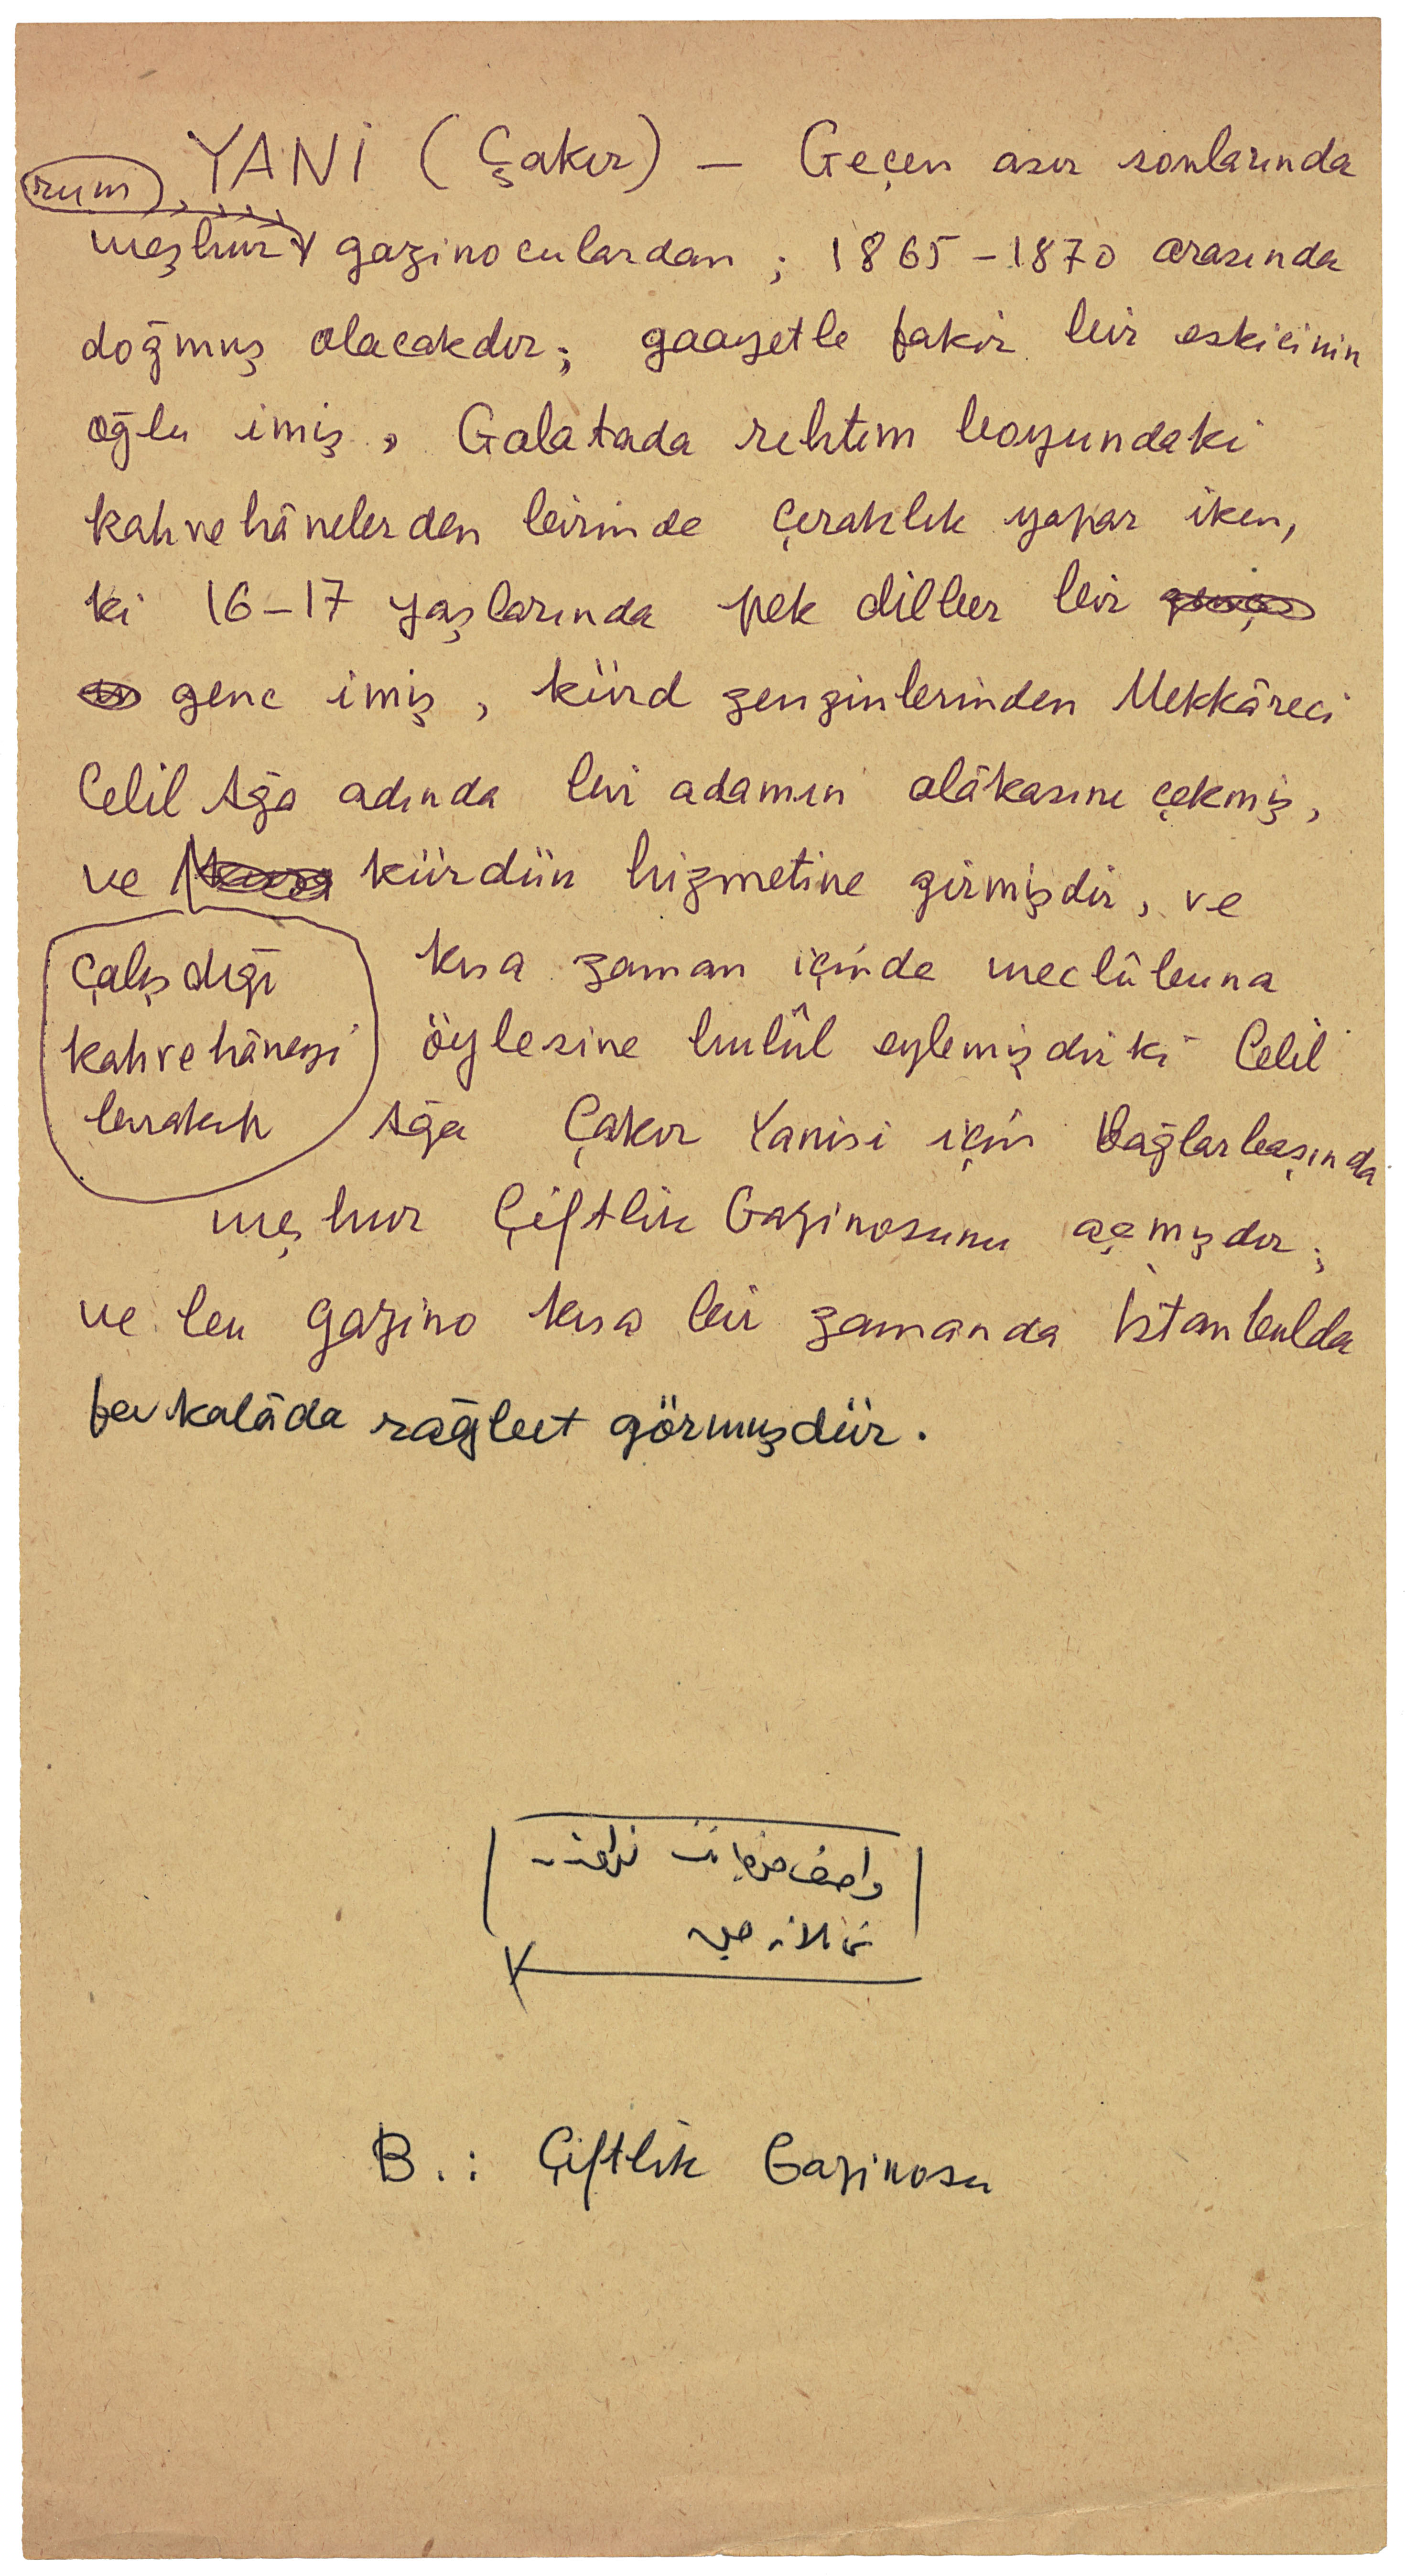 YANİ (Çakır) — Geçen asır sonlarında
rum
meşhur gazinoculardan ; 1865-1870 arasında
doğmuş olacakdır; gaayetle fakir bir eskicinin
oğlu imiş, Galatada rıhtım boyundaki
kahvehânelerden birinde çıraklık yapar iken,
ki 16-17 yaşlarında pek dilber bir
genc imiş, kürd zenginlerinden Mekkâreci
Celil Ağa adında bir adamın alâkasını çekmiş,
ve kürdün hizmetine girmişdir, ve
çalışdığı
kahvehâneyi
bırakıp
kısa zaman içinde meclûbuna
öylesine hulûl eylemişdir ki Celil
Ağa Çakır Yanisi için Bağlarbaşında
meşhur Çiftlik Gazinosunu açmışdır;
ve bu gazino kısa bir zamanda İstanbulda
fevkalâda rağbet görmuşdür.
واصف
B.: Çiftlik Gazinosu